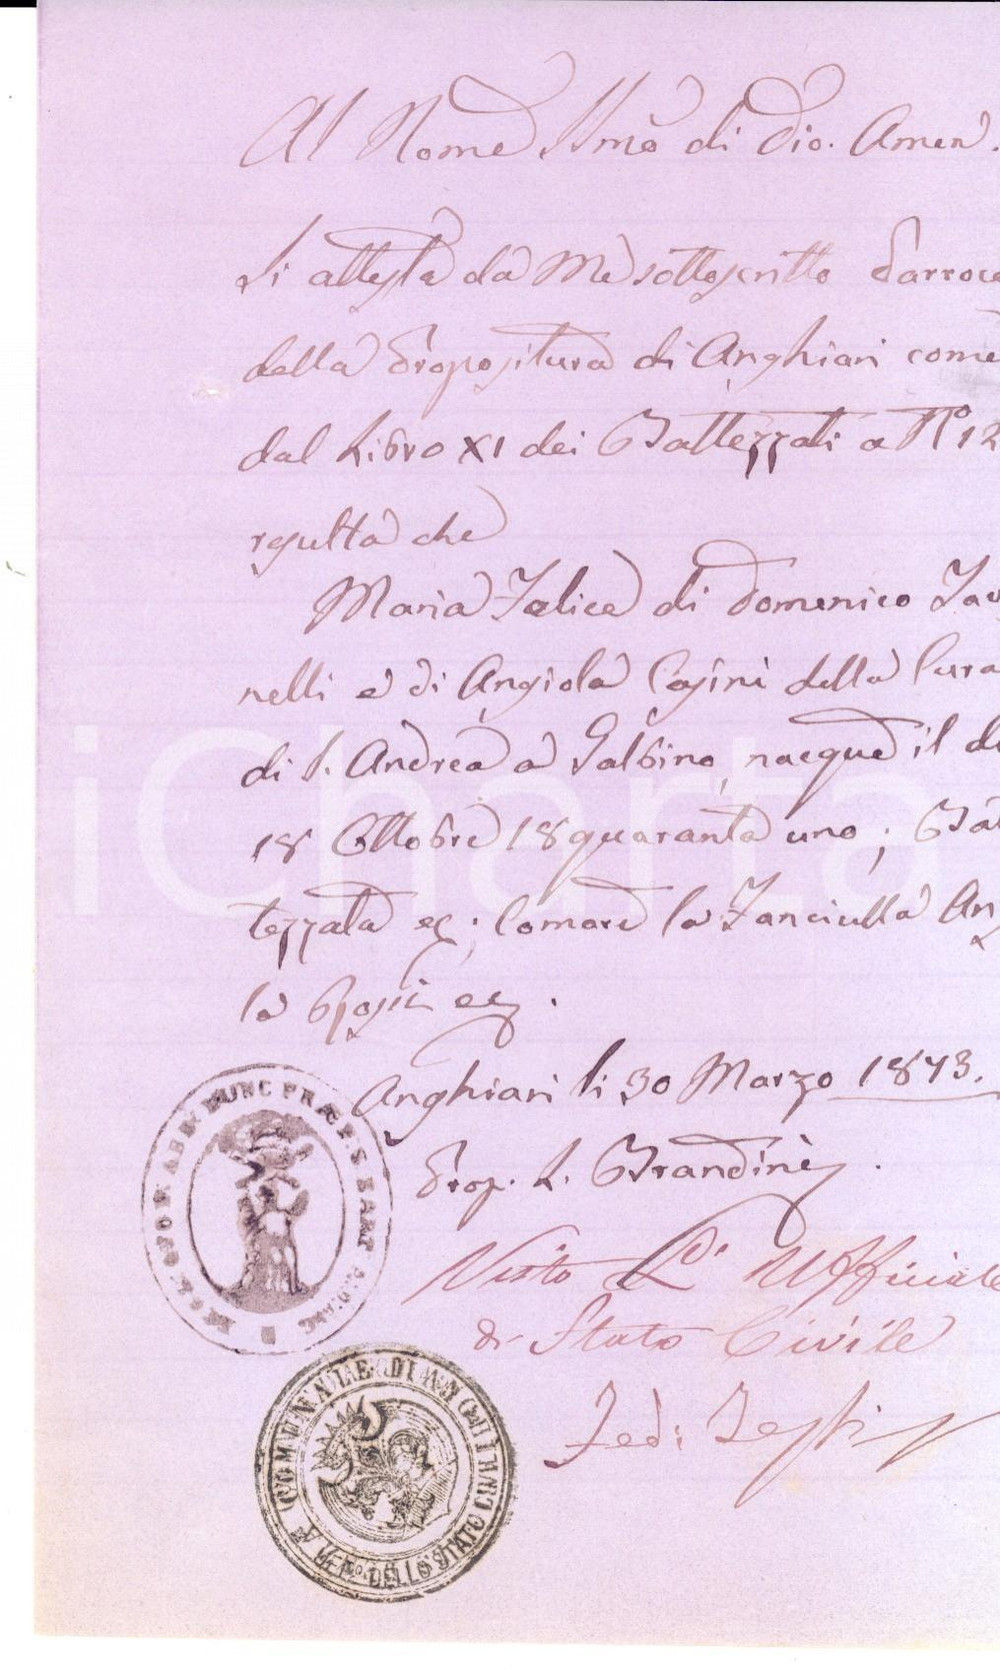 Al Nome SSmo di Dio. Amen.
Si attesta da Me sottoscritto Parroco
della Propositura di Anghiari come
dal Libro XI dei Battezzati a N° 12
resulta che
Maria Felice di Domenico Tav
nelli e di Angiola Cosini della Cura
di S. Andrea a Galbino, nacque il dì
18 Ottobre 18quaranta uno; Bat
tezzata ec; Comare la Fanciulla Ang
la ec.
Anghiari li 30 Marzo 1873.
Prop. L. Brandini
Visto L' Uffiziale
di Stato Civile
COMUNALE DI ANGHIARI
UFF° DELLO STATO CIVILE
iCharta